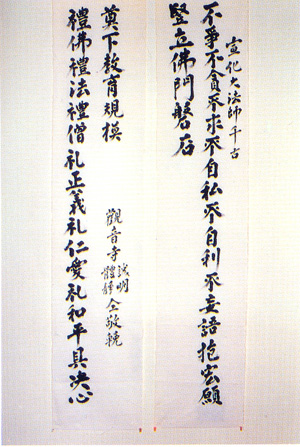 宣化大法師千古
不爭不貪不求不自私不自利不妄語抱宏願
豎立佛門磐石
禮佛禮法禮僧礼正義礼仁愛礼和平具決心
奠下教育規模
觀音寺
誠明
體靜
仝敬輓